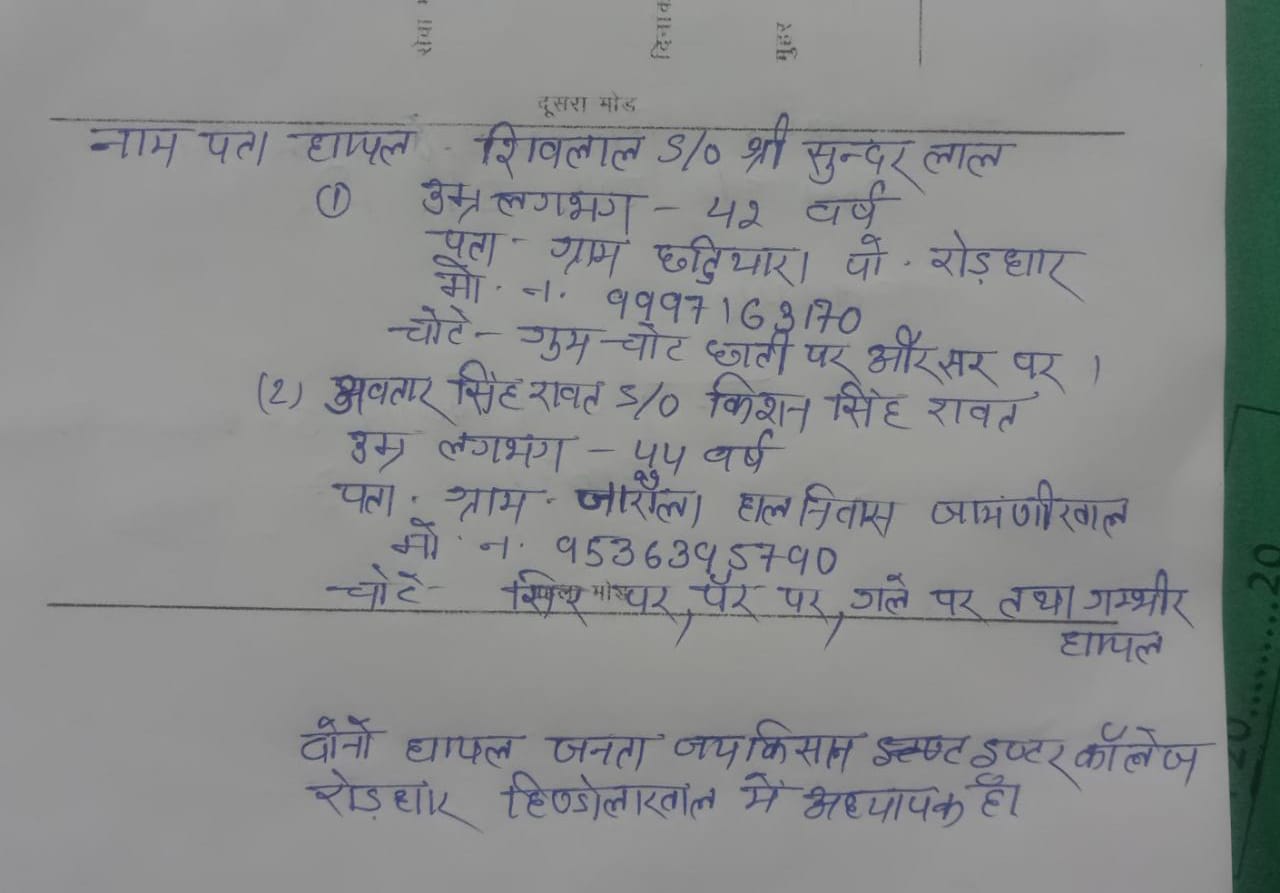 सेवा
दिनांक
मुहर
दूसरा मोड
नाम पता घायल - शिवलाल S/o श्री सुन्दर लाल
① उम्र लगभग - 42 वर्ष
पता - ग्राम छटियारा पो. रोड़धार
मो. न. 9997163170
चोटे - गुम चोट छाती पर और सर पर ।
(2) अवतार सिंह रावत S/o किशन सिंह रावत
उम्र लगभग - 55 वर्ष
पता - ग्राम - हाल निवास जामणीखाल
मो. न. 9536395790
चोटें - सिर पर, पैर पर, गले पर तथा गम्भीर
घायल
दोनों घायल जनता जयकिसान इण्टर कॉलेज
रोड़धार हिण्डोलाखाल में अध्यापक हैं।
20
20